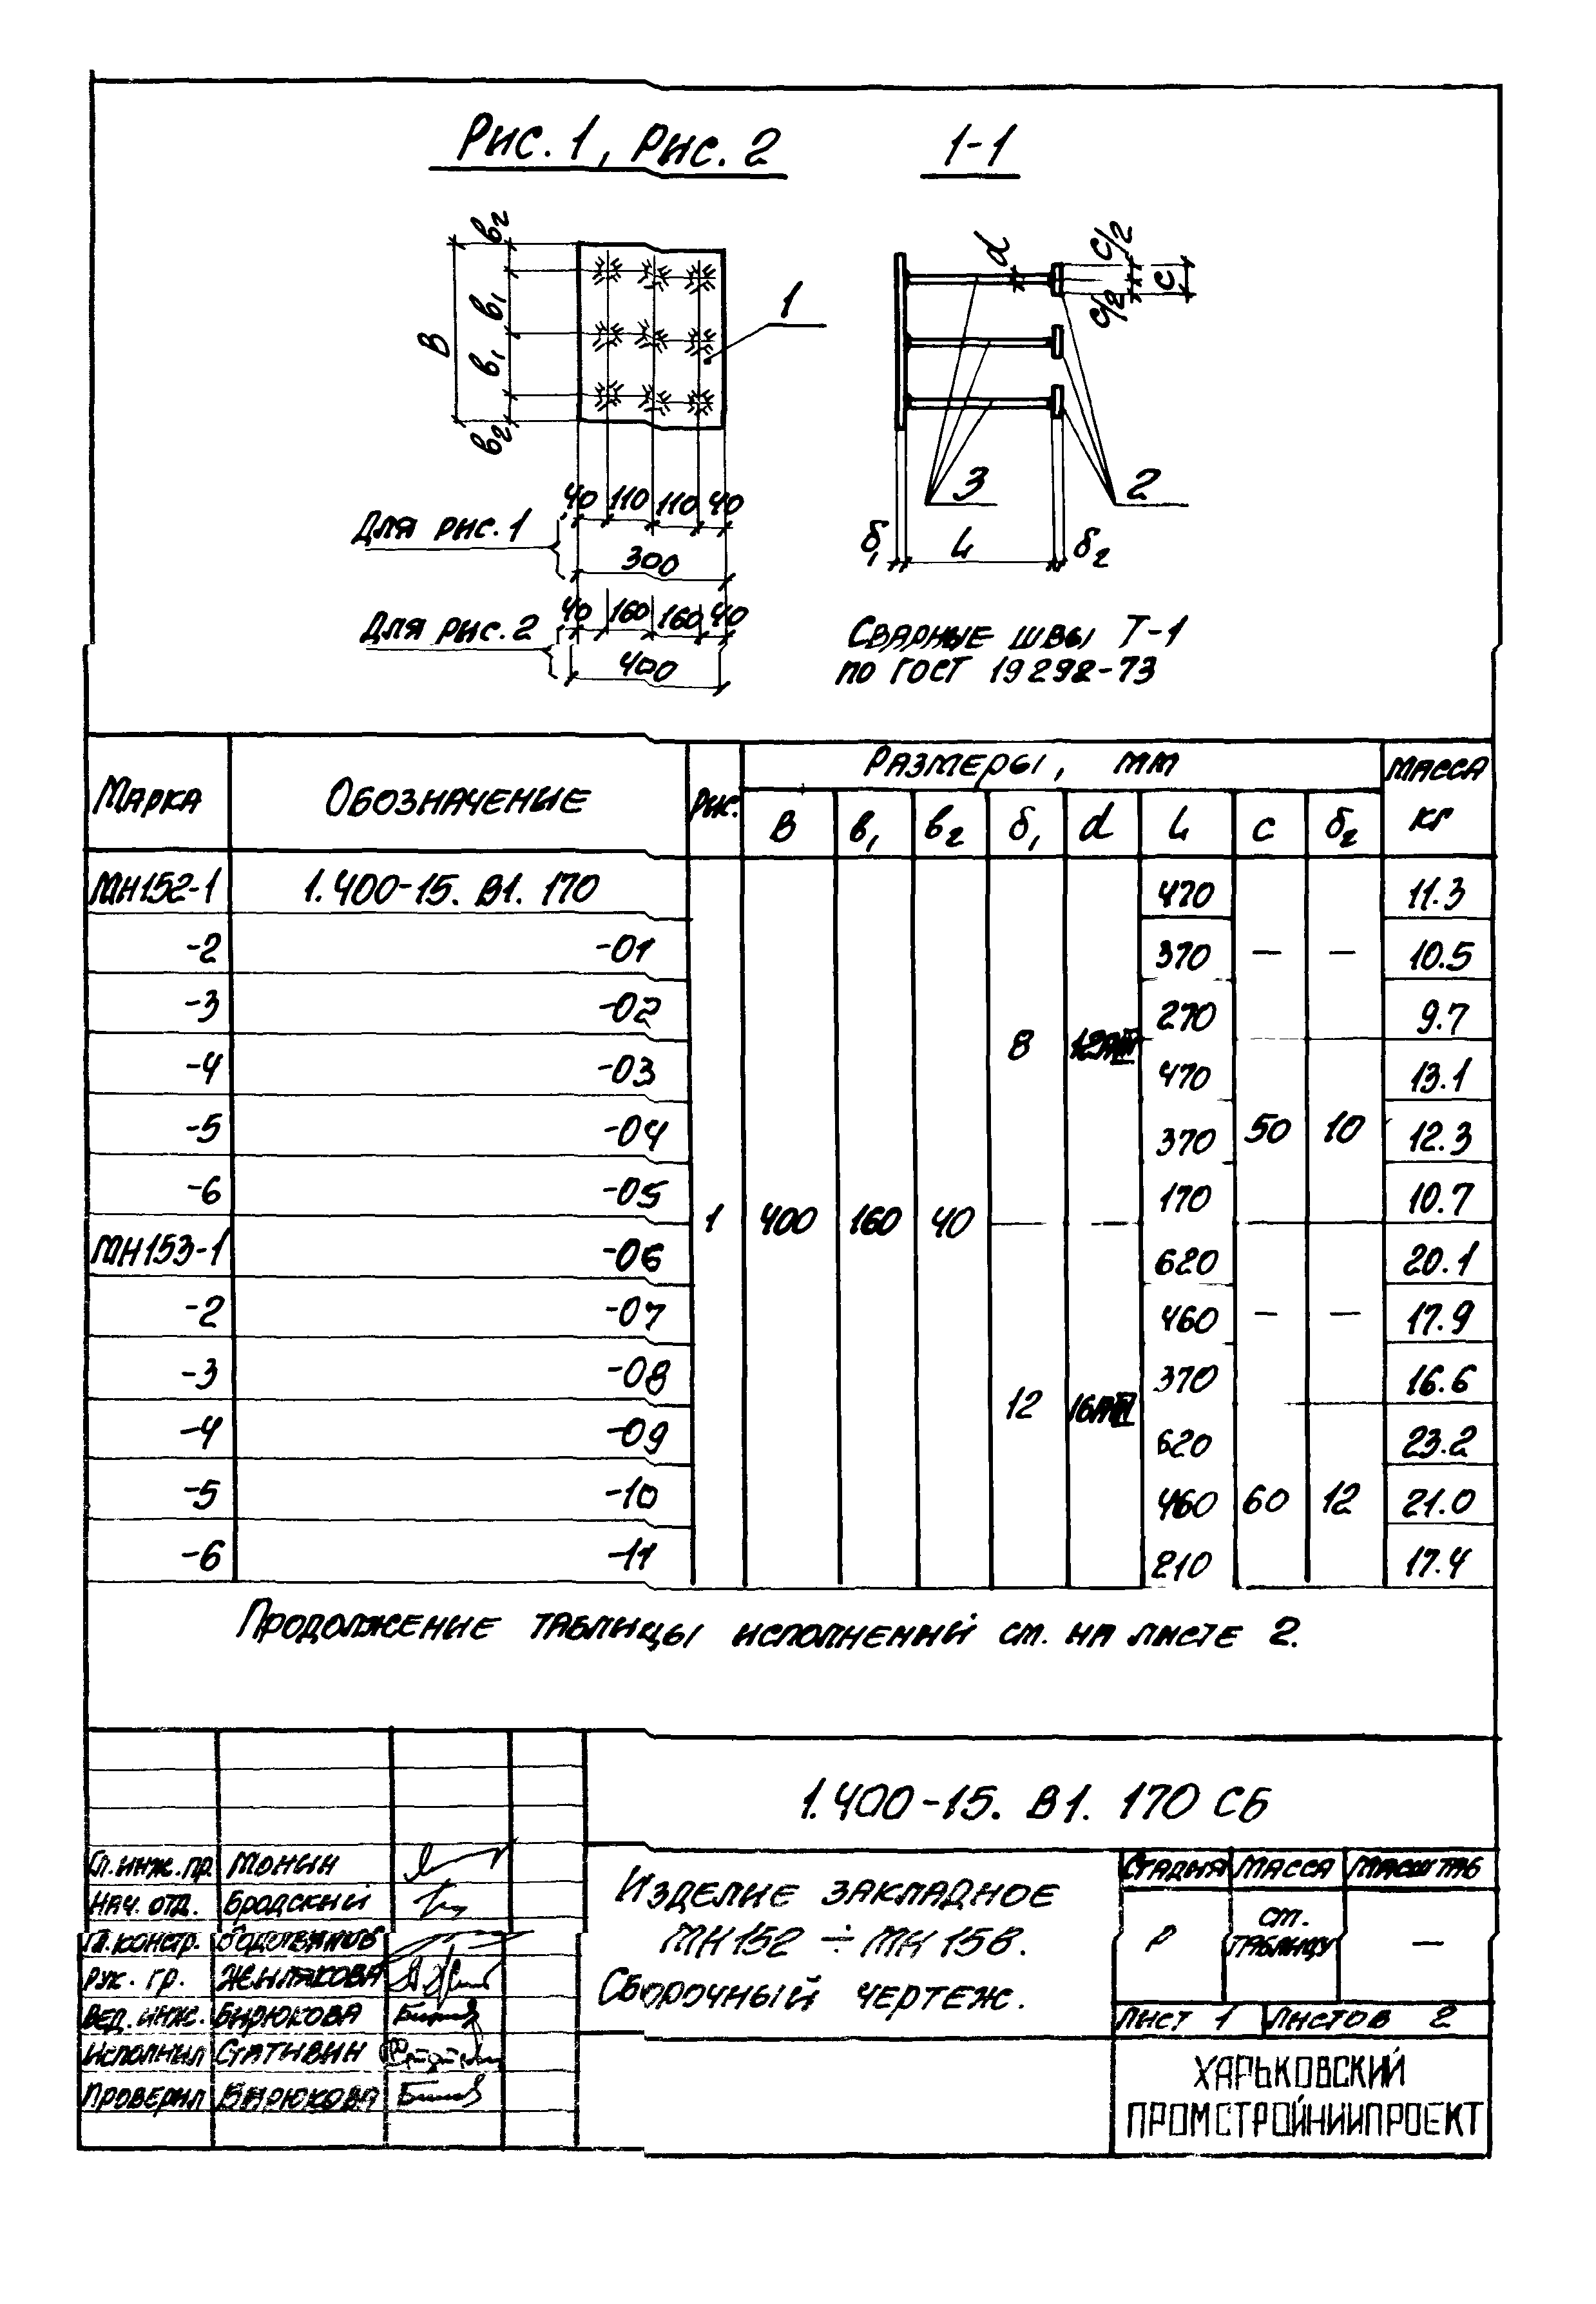 Рис. 1, Рис. 2
1-1
в2
в1
В
в1
в2
1
d
с/2
с
с/2
3
2
40 110 110 40
Для рис. 1
300
δ1 L δ2
40 160 160 40
Для рис. 2
400
Сварные швы Т-1
по ГОСТ 19292-73
Марка Обозначение Рис. Размеры, мм Масса кг
В в1 в2 δ1 d L с δ2
МН152-1 1.400-15. В1. 170 470 11.3
-2 -01 370 — — 10.5
-3 -02 270 9.7
8 12АIII
-4 -03 470 13.1
-5 -04 370 50 10 12.3
-6 -05 170 10.7
1 400 160 40
МН153-1 -06 620 20.1
-2 -07 460 — — 17.9
-3 -08 370 16.6
12 16АIII
-4 -09 620 23.2
-5 -10 460 60 12 21.0
-6 -11 210 17.4
Продолжение таблицы исполнений см. на листе 2.
1.400-15. В1. 170 СБ
Гл. инж. пр. Монин
Нач. отд. Бродский
Гл. констр.
Рук. гр.
Вед. инж. Бирюкова
Исполнил Стативин
Проверил Бирюкова
Изделие закладное
МН152 ÷ МН158.
Сборочный чертеж.
Стадия Масса Масштаб
Р см. таблицу —
Лист 1 Листов 2
ХАРЬКОВСКИЙ
ПРОМСТРОЙНИИПРОЕКТ